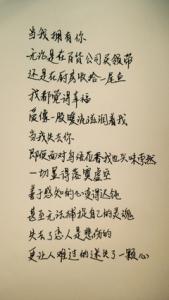 当我拥有你
无论是在百货公司买领带
还是在厨房收拾一尾鱼
我都觉得幸福
爱像一股暖流滋润着我
当我失去你
即便面对乌语花香我也兴味索然
一切显得落寞虚空
善于感知的心变得迟钝
甚至无法捕捉自己的灵魂
失去了恋人是悲伤的
更让人难过的迷失了一颗心